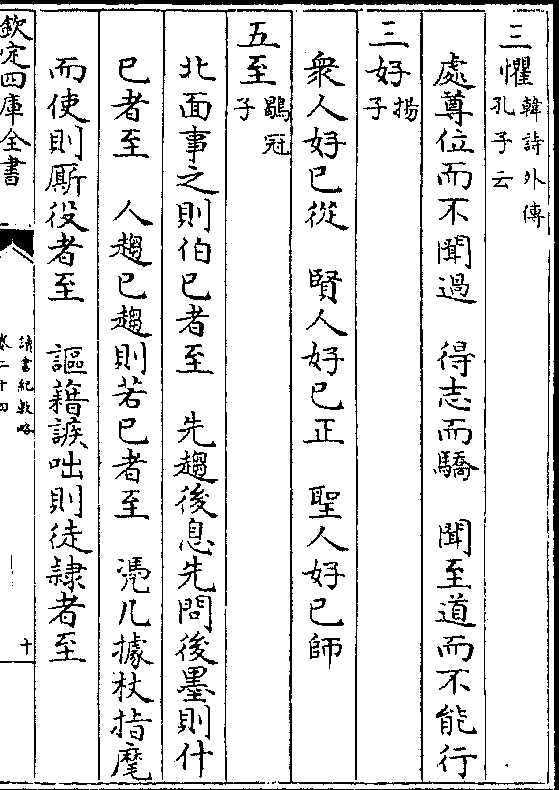 三懼韓詩外傳孔子云
處尊位而不聞過　得志而驕　聞至道而不能行
三好揚子
衆人好己從　賢人好己正　聖人好己師
五至鶡冠子
北面事之則伯己者至　先趨後息先問後墨則什
己者至　人趨己趨則若己者至　凴几據杖指麾
而使則厮役者至　謳藉諔咄則徒隷者至
欽定四庫全書
讀書紀數略
卷二十四
十